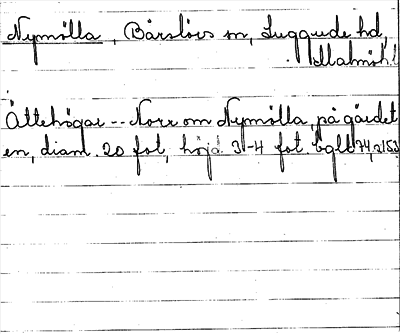 Nymölla, Bårslövs sn, Luggude hd,
Malmöh.l
Ättehögar -- Norr om Nymölla, på gärdet
en, diam. 20 fot, höjd 3-4 fot.